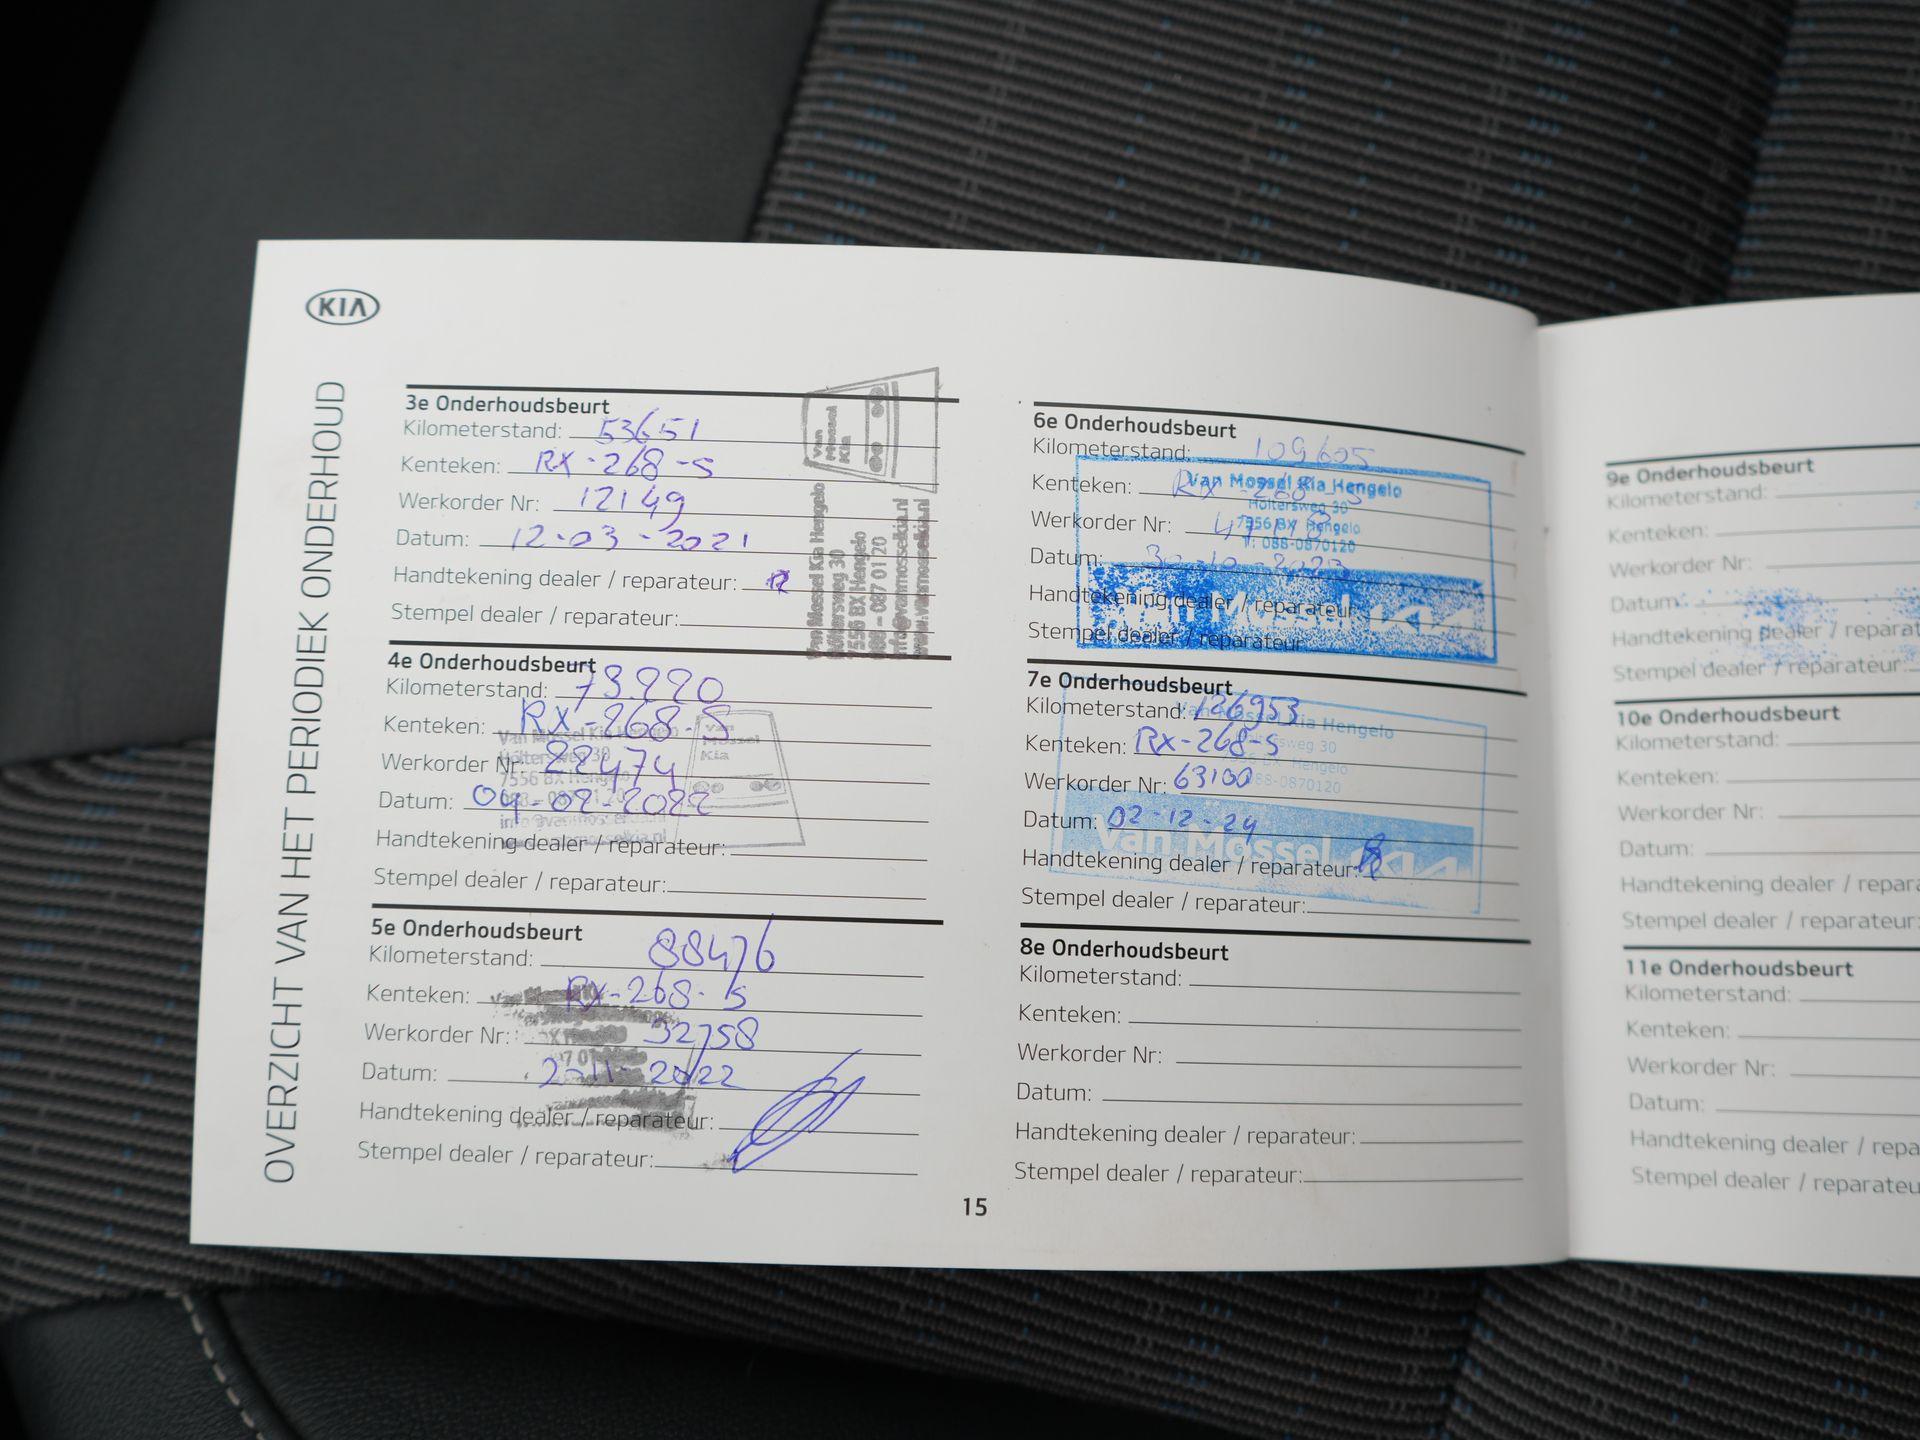 KIA
OVERZICHT VAN HET PERIODIEK ONDERHOUD
3e Onderhoudsbeurt
Kilometerstand: 53651
Kenteken: RX-268-S
Werkorder Nr: 12149
Datum: 12-03-2021
Handtekening dealer / reparateur:
Stempel dealer / reparateur:
Van Mossel Kia
Van Mossel Kia Hengelo
Höltersweg 30
7556 BX Hengelo
088 - 087 01 20
info@vanmosselkia.nl
www.vanmosselkia.nl
4e Onderhoudsbeurt
Kilometerstand: 73220
Kenteken: RX-268-S
Werkorder Nr: 22474
Datum: 04-02-2022
Handtekening dealer / reparateur:
Stempel dealer / reparateur:
Van Mossel Kia Hengelo
Höltersweg 30
7556 BX Hengelo
Van Mossel Kia
5e Onderhoudsbeurt
Kilometerstand: 88476
Kenteken: RX-268-S
Werkorder Nr: 32758
Datum: 2-11-2022
Handtekening dealer / reparateur:
Stempel dealer / reparateur:
15
6e Onderhoudsbeurt
Kilometerstand: 109605
Kenteken: RX-268-S
Werkorder Nr:
Datum: 30-10-2023
Handtekening dealer / reparateur
Stempel dealer / reparateur
Van Mossel Kia Hengelo
Höltersweg 30
7556 BX Hengelo
T: 088-0870120
Van Mossel KIA
7e Onderhoudsbeurt
Kilometerstand: 126953
Kenteken: RX-268-S
Werkorder Nr: 63100
Datum: 02-12-24
Handtekening dealer / reparateur:
Stempel dealer / reparateur:
Van Mossel Kia Hengelo
Höltersweg 30
7556 BX Hengelo
088-0870120
Van Mossel KIA
8e Onderhoudsbeurt
Kilometerstand:
Kenteken:
Werkorder Nr:
Datum:
Handtekening dealer / reparateur:
Stempel dealer / reparateur:
9e Onderhoudsbeurt
Kilometerstand:
Kenteken:
Werkorder Nr:
Datum:
Handtekening dealer / reparat
Stempel dealer / reparateur:
10e Onderhoudsbeurt
Kilometerstand:
Kenteken:
Werkorder Nr:
Datum:
Handtekening dealer / repar
Stempel dealer / reparateur:
11e Onderhoudsbeurt
Kilometerstand:
Kenteken:
Werkorder Nr:
Datum:
Handtekening dealer / repa
Stempel dealer / reparateu